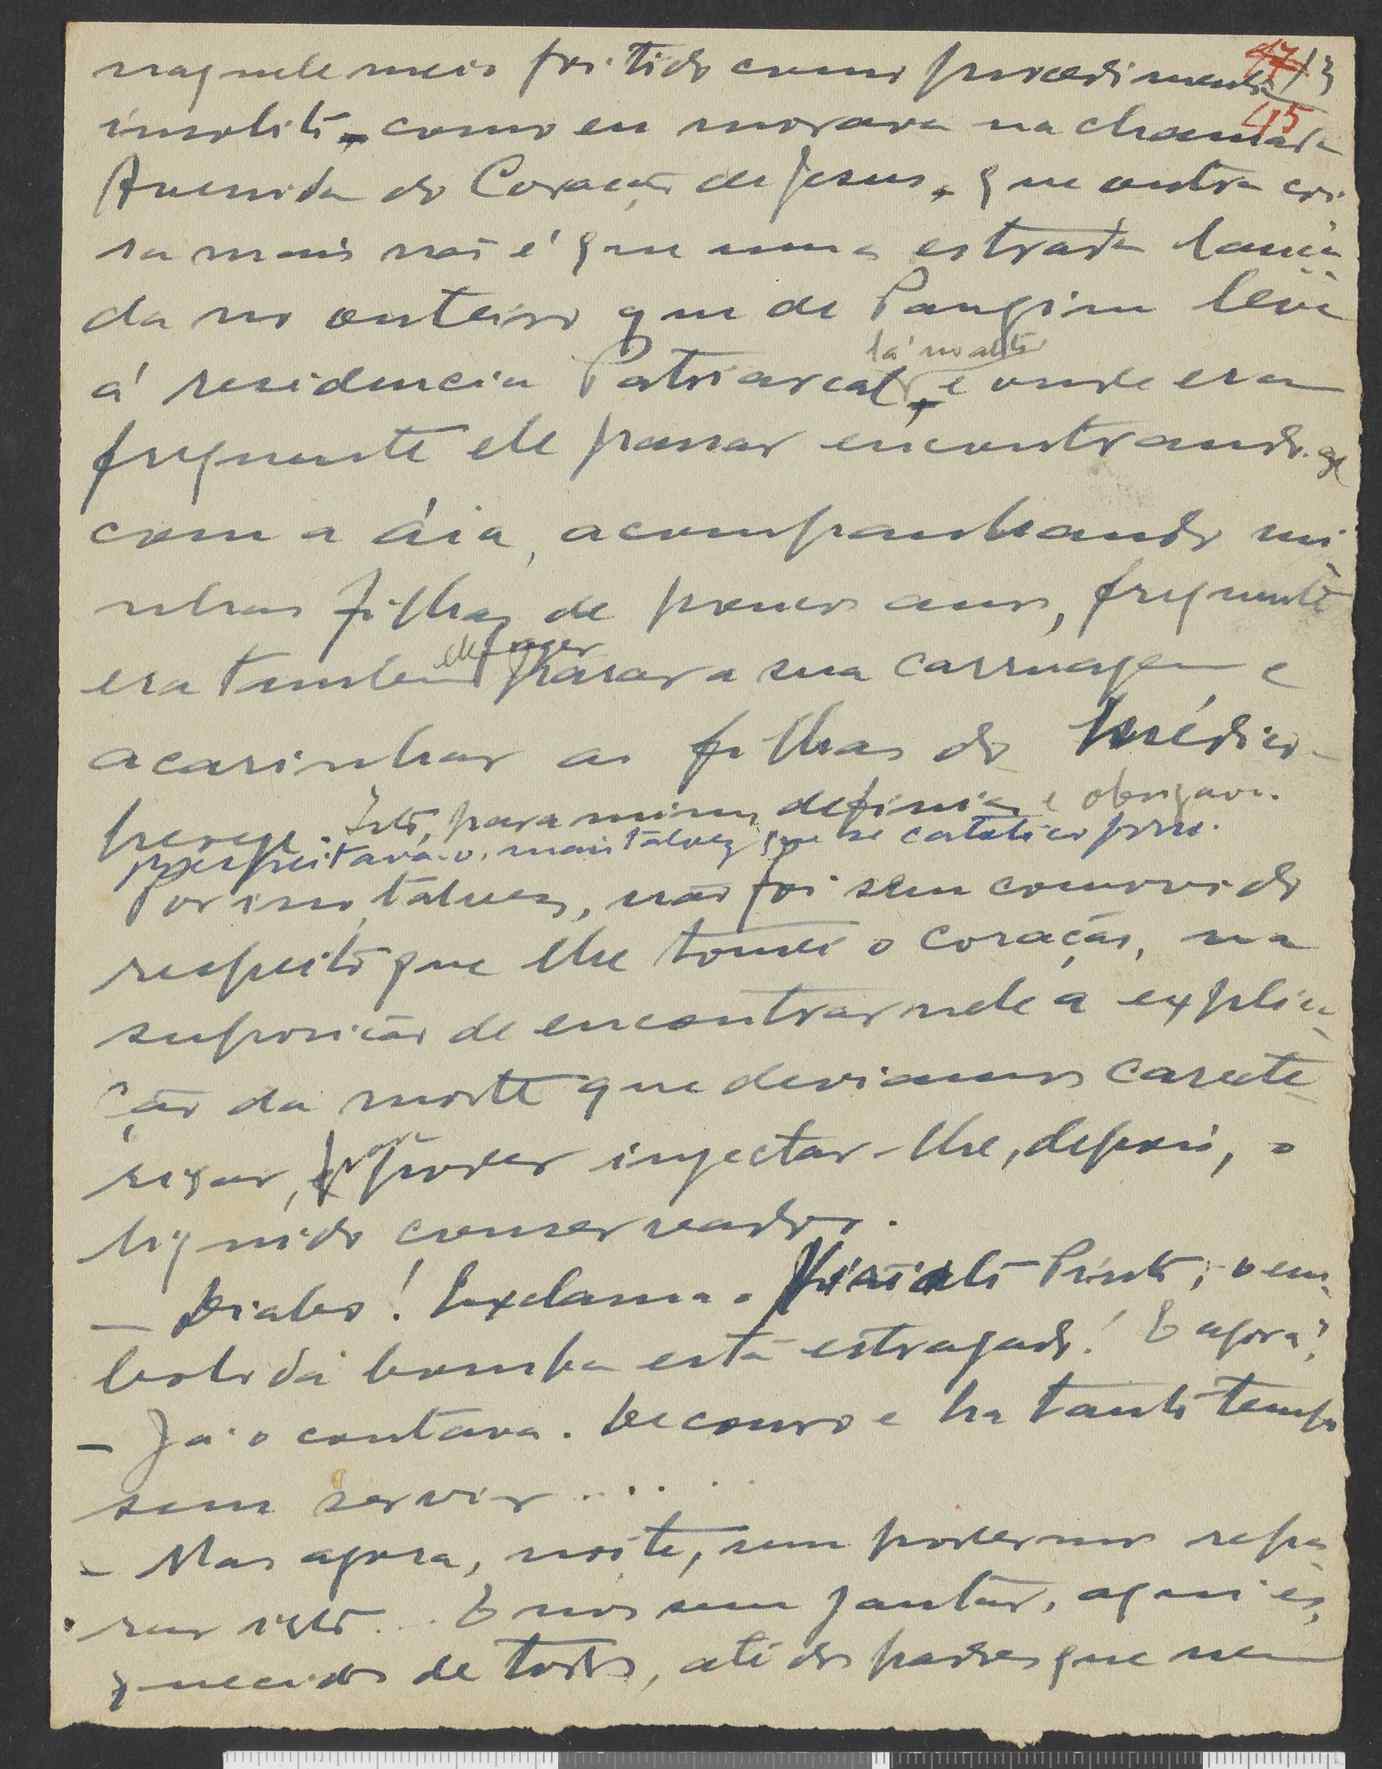 47 13
naquele meio foi tido como procedimento
45
insolito - como eu morava na chamada
Avenida do Coração de Jesus, que outra coi-
sa mais não é que uma estrada lança-
da no outeiro que de Pangim leva
lá no alto
á residencia Patriarcal, e onde era
frequente ele passar encontrando-se
com a áia, acompanhando mi-
nhas filhas de poucos anos, frequente
ele fazer
era tambem parar a sua carruagem e
acarinhar as filhas do Médico-
herege. Isto, para mim, definia e obrigava.
respeitava-o, mais talvez que se catolico fosse.
Por isso, talvez, não foi sem comovido
respeito que lhe tomei o coração, na
suposição de encontrar nele a explica-
ção da morte que deviamos caracte-
risar, e poder injectar-lhe, depois, o
liquido conservador.
- Diabo! Exclama o Pinto, o em-
bolo da bomba está estragado! E agora?
- Já o contava. De couro e ha tanto tempo
sem servir.....
- Mas agora, noite, sem podermos repa-
rar isto... E nós sem jantar, aqui es-
quecidos de todos, até dos padres que nem